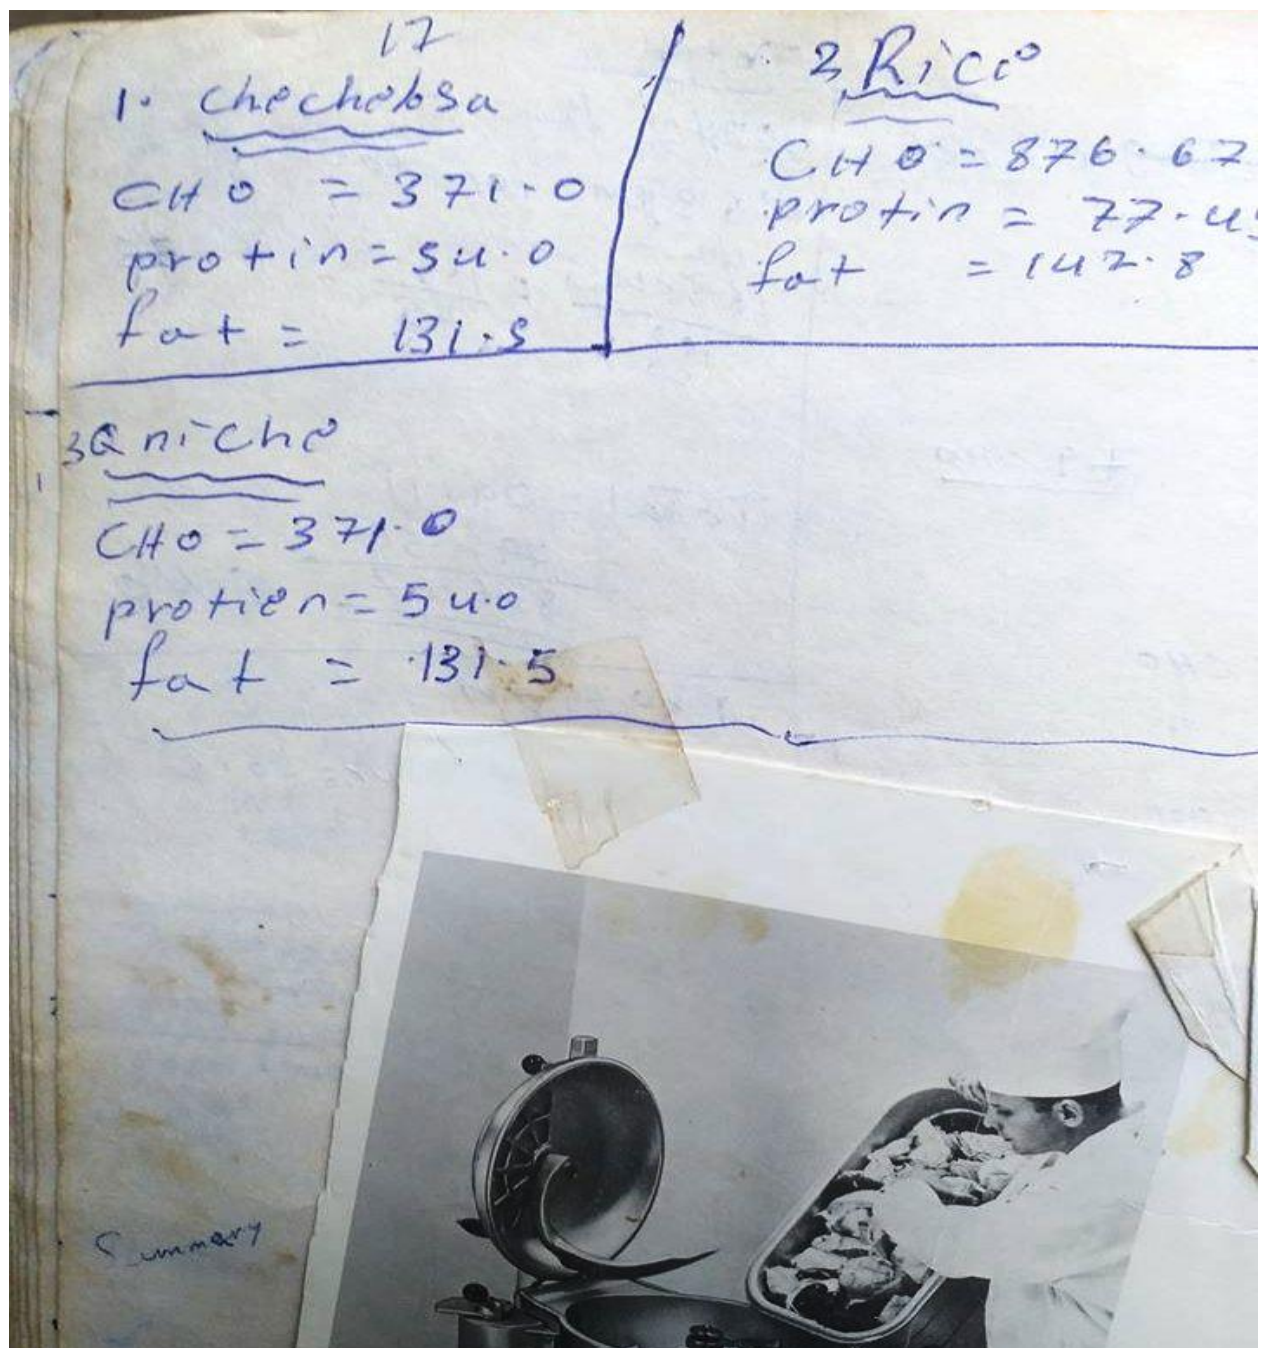 17
1. chechebsa
CHO = 371.0
protin = 54.0
fat = 131.5
2, Rice
CHO = 876.67
protin = 77.4
fat = 142.8
3 Qniche
CHO = 371.0
protien = 54.0
fat = 131.5
Summary